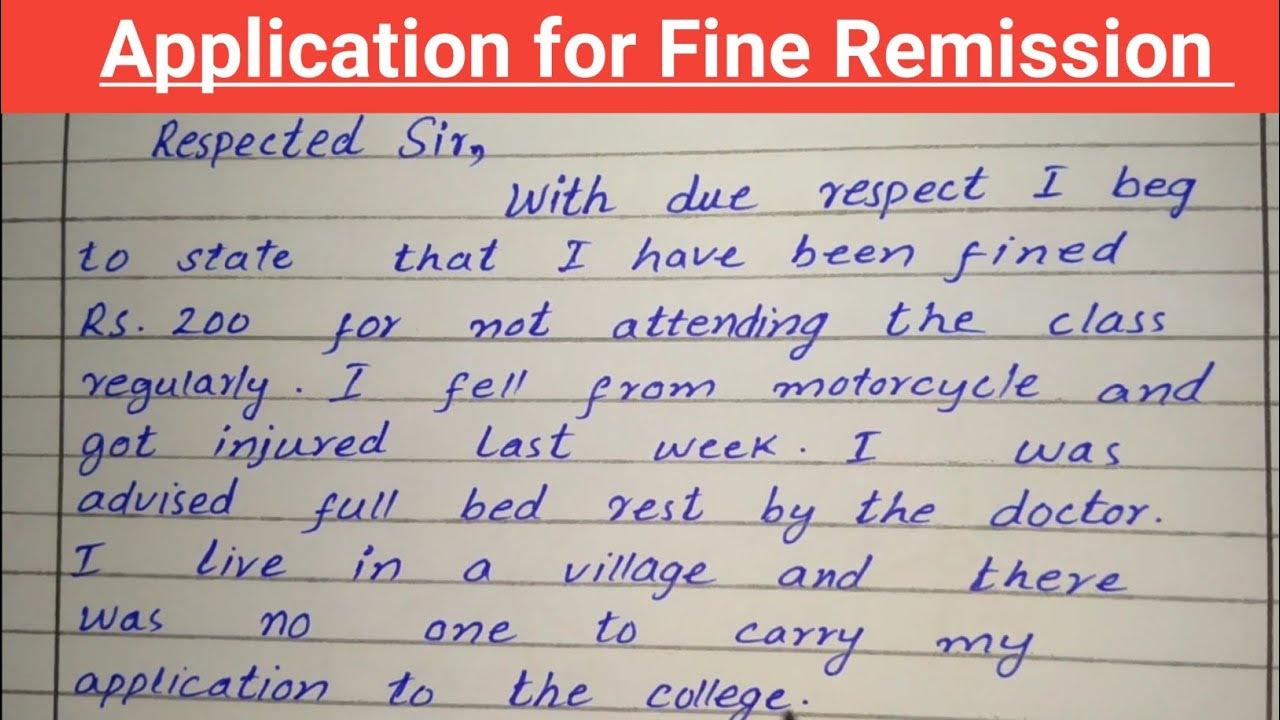 Application for Fine Remission
Respected Sir,
With due respect I beg
to state that I have been fined
Rs. 200 for not attending the class
regularly. I fell from motorcycle and
got injured last week. I was
advised full bed rest by the doctor.
I live in a village and there
was no one to carry my
application to the college.